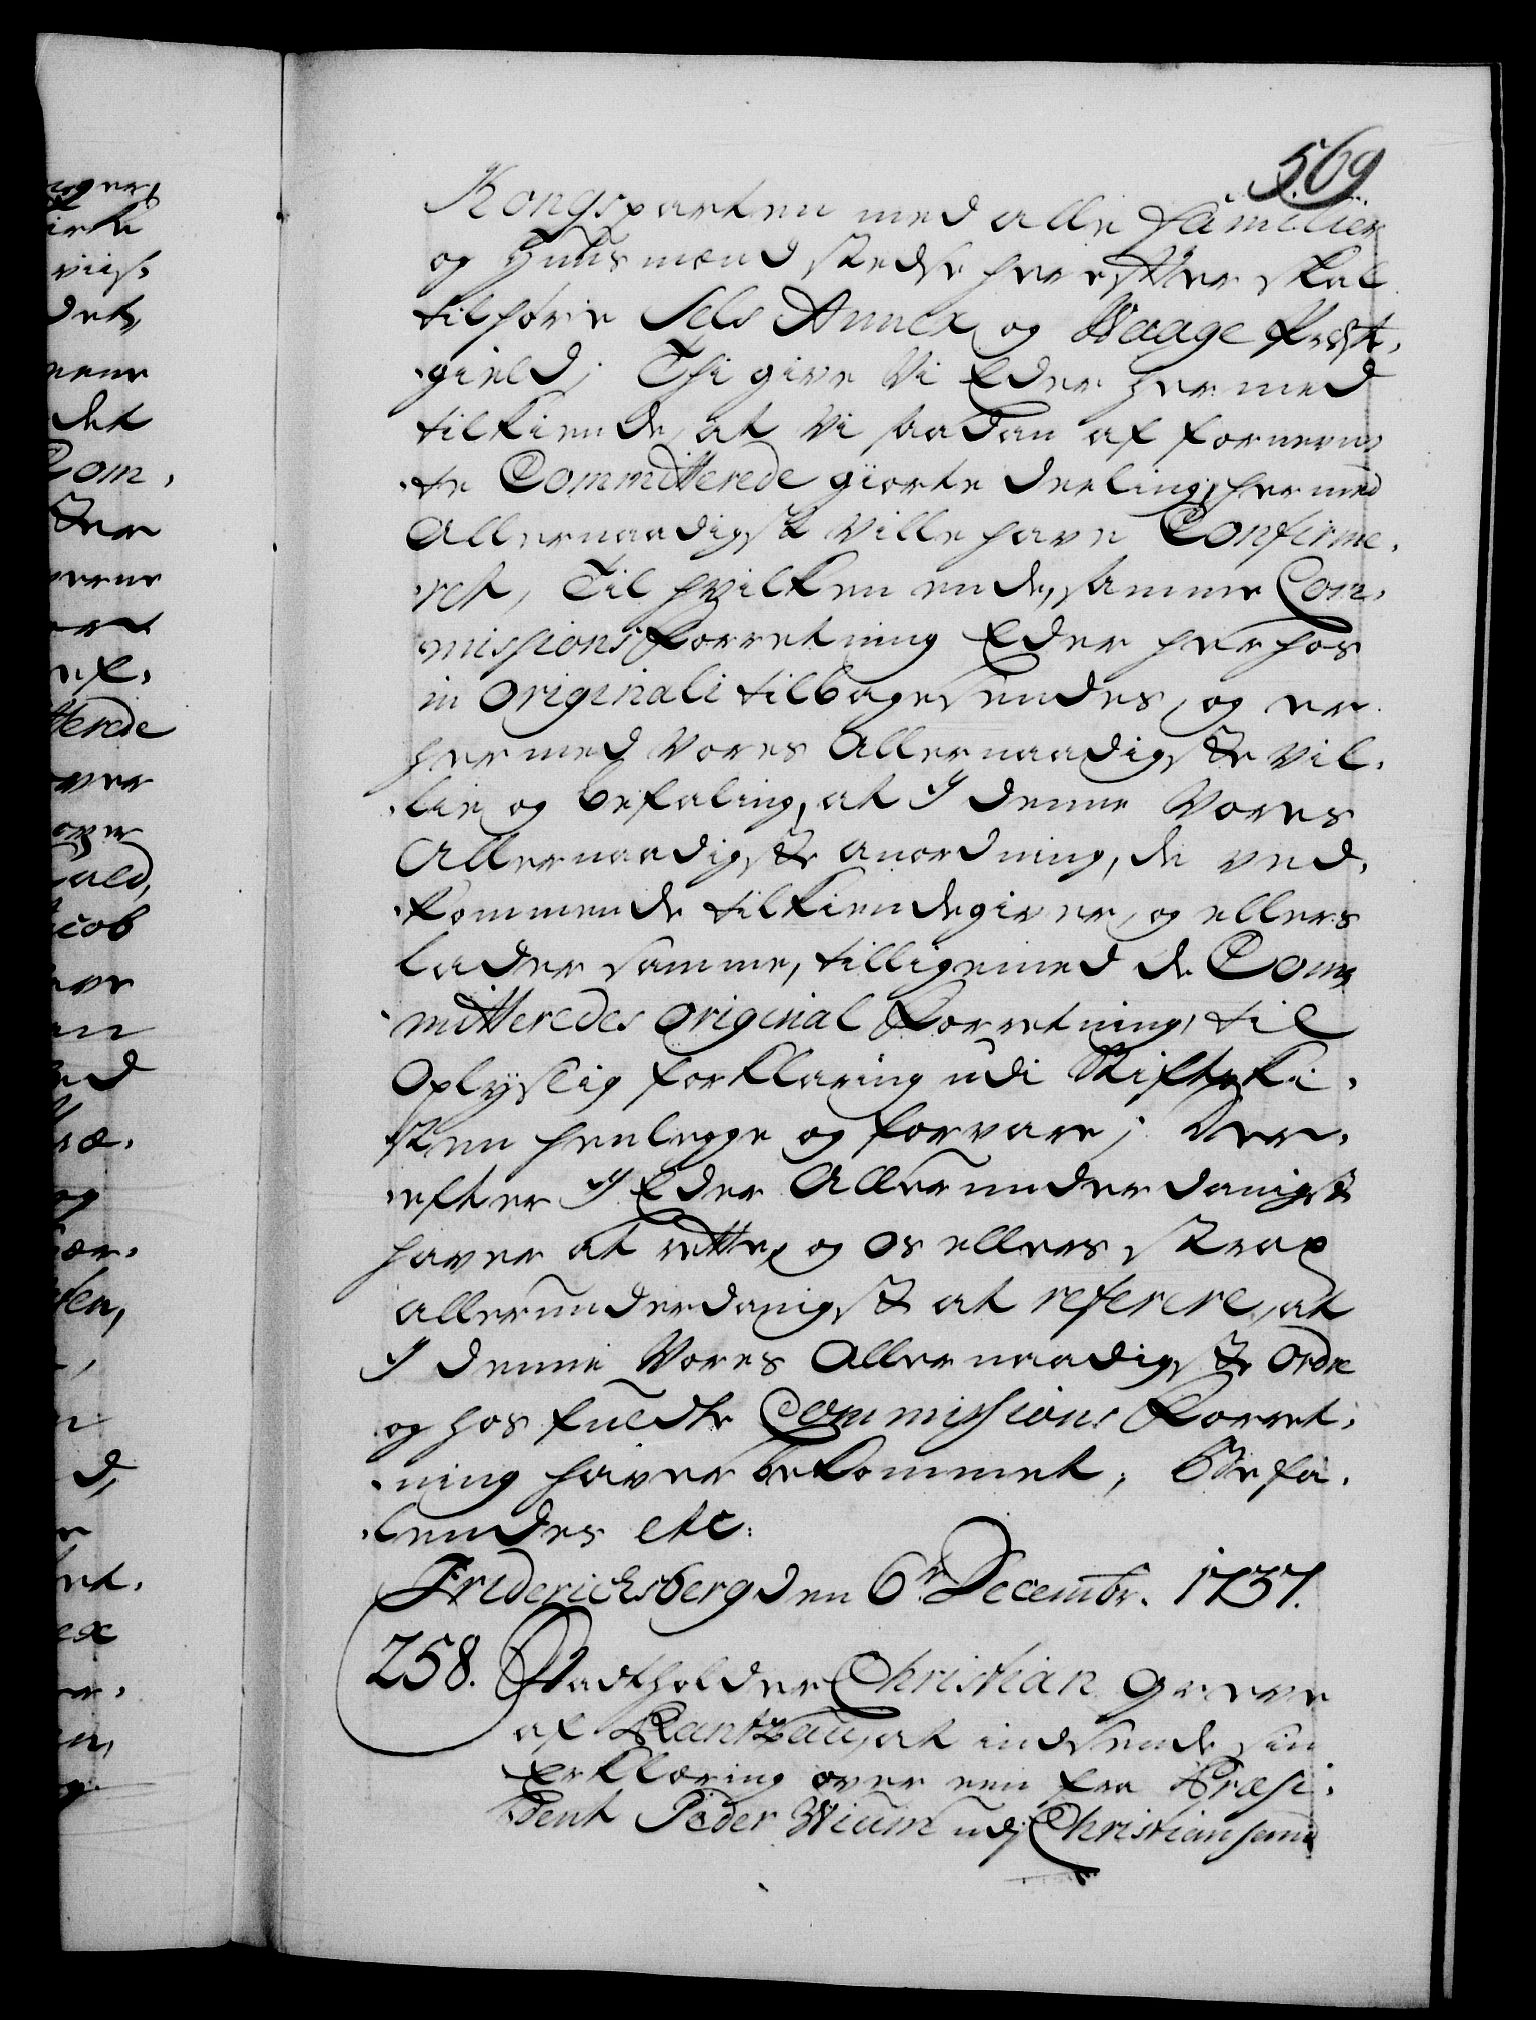 569
Kongsparten med alle Familier
og Huusmænd stedse herefter skal
tilhøre Sels Annex og Waage Præste,
gield; Thi give Vi Eder hermed
tilkiende, at Vi saadan af fornevn,
te Committerede giorte deeling, hermed
Allernaadigst ville have Confirme,
ret, Til hvilken ende, samme Com,
missions Forretning Eder herhos
in Originali tilbagesendes, og er
hermed Vores Allernaadigste Vil,
lie og befaling, at I denne Vores
Allernaadigste anordning, de ved,
kommende tilkiendegiver, og ellers
lader samme, tilligemed de Com,
mitteredes Original Forretning, til
Oplyslig forklaring udi Stiftski,
sten henlegge og forvare; Der,
efter I Eder Allerunderdanigst
haver at rette, og Os ellers strax
allerunderdanigst at referere, at
I denne Vores Allernaadigste Ordre
og hosfuedte Commissions Forret,
ning haver bekommet; Befa,
lendes etc:
Friderichsberg den 6te Decembr. 1737.
258. Stadtholder Christian Greve
af Rantzau, at indsende sin
Erklæring over een fra Præsi,
dent Peder Wium udj Christiansand